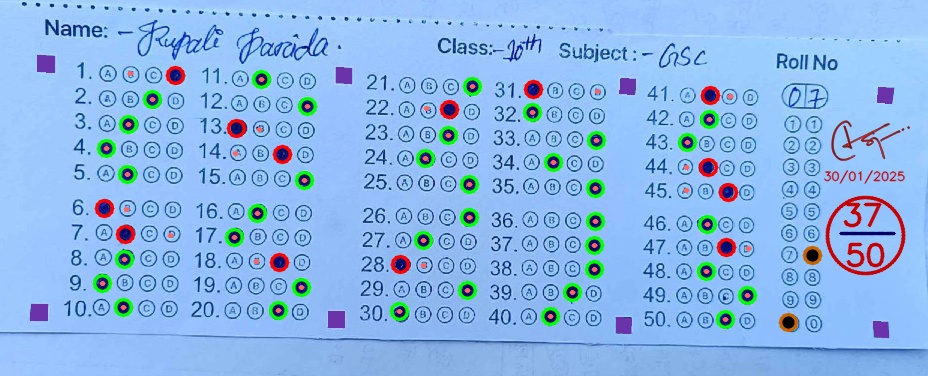 Name: - Rupali Parida. Class:- 10th Subject:- GSC Roll No
1. A C
2. A B D
3. A C D
4. B C D
5. A C D
6. C D
7. A C
8. A C D
9. B C D
10. A C D
11. A C D
12. A B C
13. C D
14. B D
15. A B C
16. A C D
17. B C D
18. A D
19. A B C
20. A B D
21. A B C
22. A D
23. A B D
24. A C D
25. A B C
26. A B C
27. A C D
28. C D
29. A B C
30. B C D
31. B C
32. B C D
33. A B C
34. A C D
35. A B C
36. A B C
37. A B C
38. A B C
39. A B D
40. A C D
41. A D
42. A C D
43. B C D
44. C D
45. B D
46. A C D
47. A B
48. A C D
49. A B C
50. A B D
07
1 1
2 2
3 3
4 4
5 5
6 6
7
8 8
9 9
0
30/01/2025
37
50